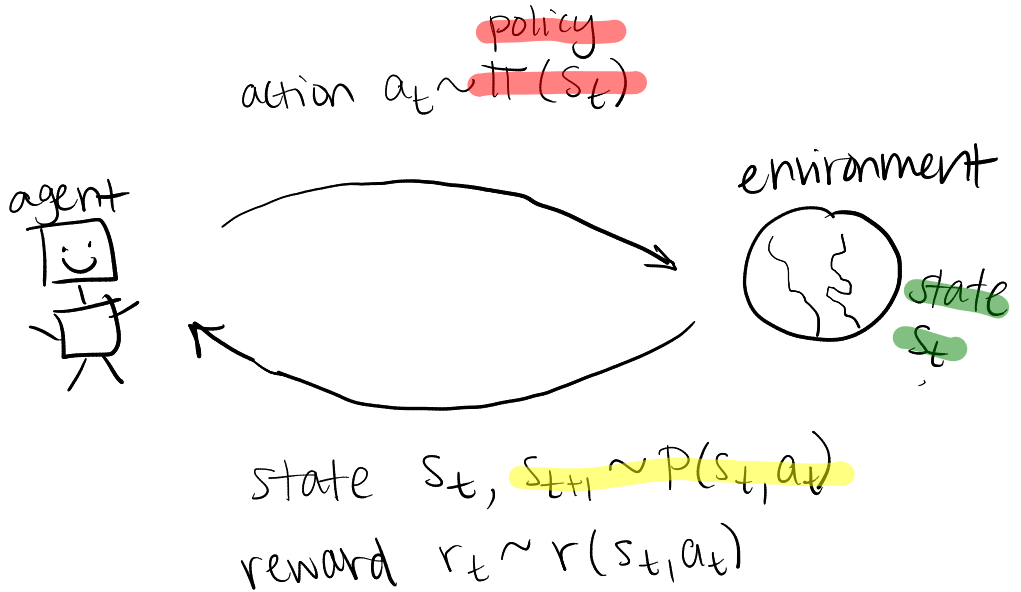 policy
action a_t ~ π(s_t)
environment
agent
state
s_t
state s_t, s_{t+1} ~ P(s_t, a_t)
reward r_t ~ r(s_t, a_t)